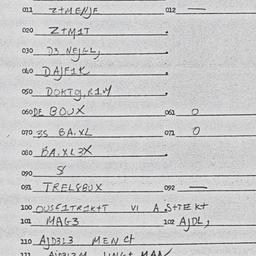 011 Z+MENJE 012 —
020 Z+M1T .
030 D3 NEJEL, .
040 DAJF1K .
050 DOKTO,R1M .
060 DE BOUX 061 O
070 3S BA.XL 071 O
080 BA.XL3X
090 8
091 TREL8BUX 092 —
100 OUSE1TR1K+T VI A S+TEKT
101 MAG3 102 AJDL,
110 AJD3L3 MEN C+
111